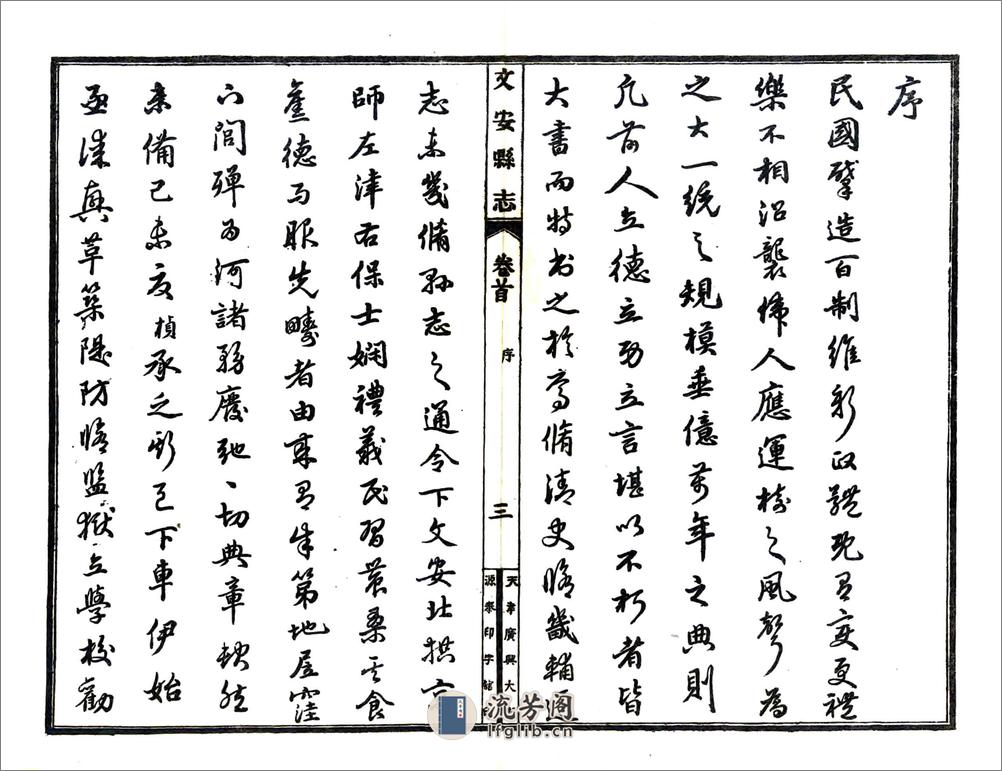 序
民國肇造百制維新政體既有變更禮
樂不相沿襲偉人應運樹之風聲為
之大一統之規模垂億萬年之典則
凡前人立德立功立言堪以不朽者皆
大書而特書之於焉脩清史脩畿輔通
文安縣志 卷首 序 三 天津廣興大
源泰印字館
志未幾脩縣志之通令下文安北拱京
師左津右保士嫻禮義民習農桑其食
舊德而服先疇者由來有年第地居窪
下閭殫為河諸務廢弛一切典章缺然
未備己未夏楨承乏斯邑下車伊始
亟謀興革築隄防脩監獄立學校勸
流芳阁
lfglib.cn